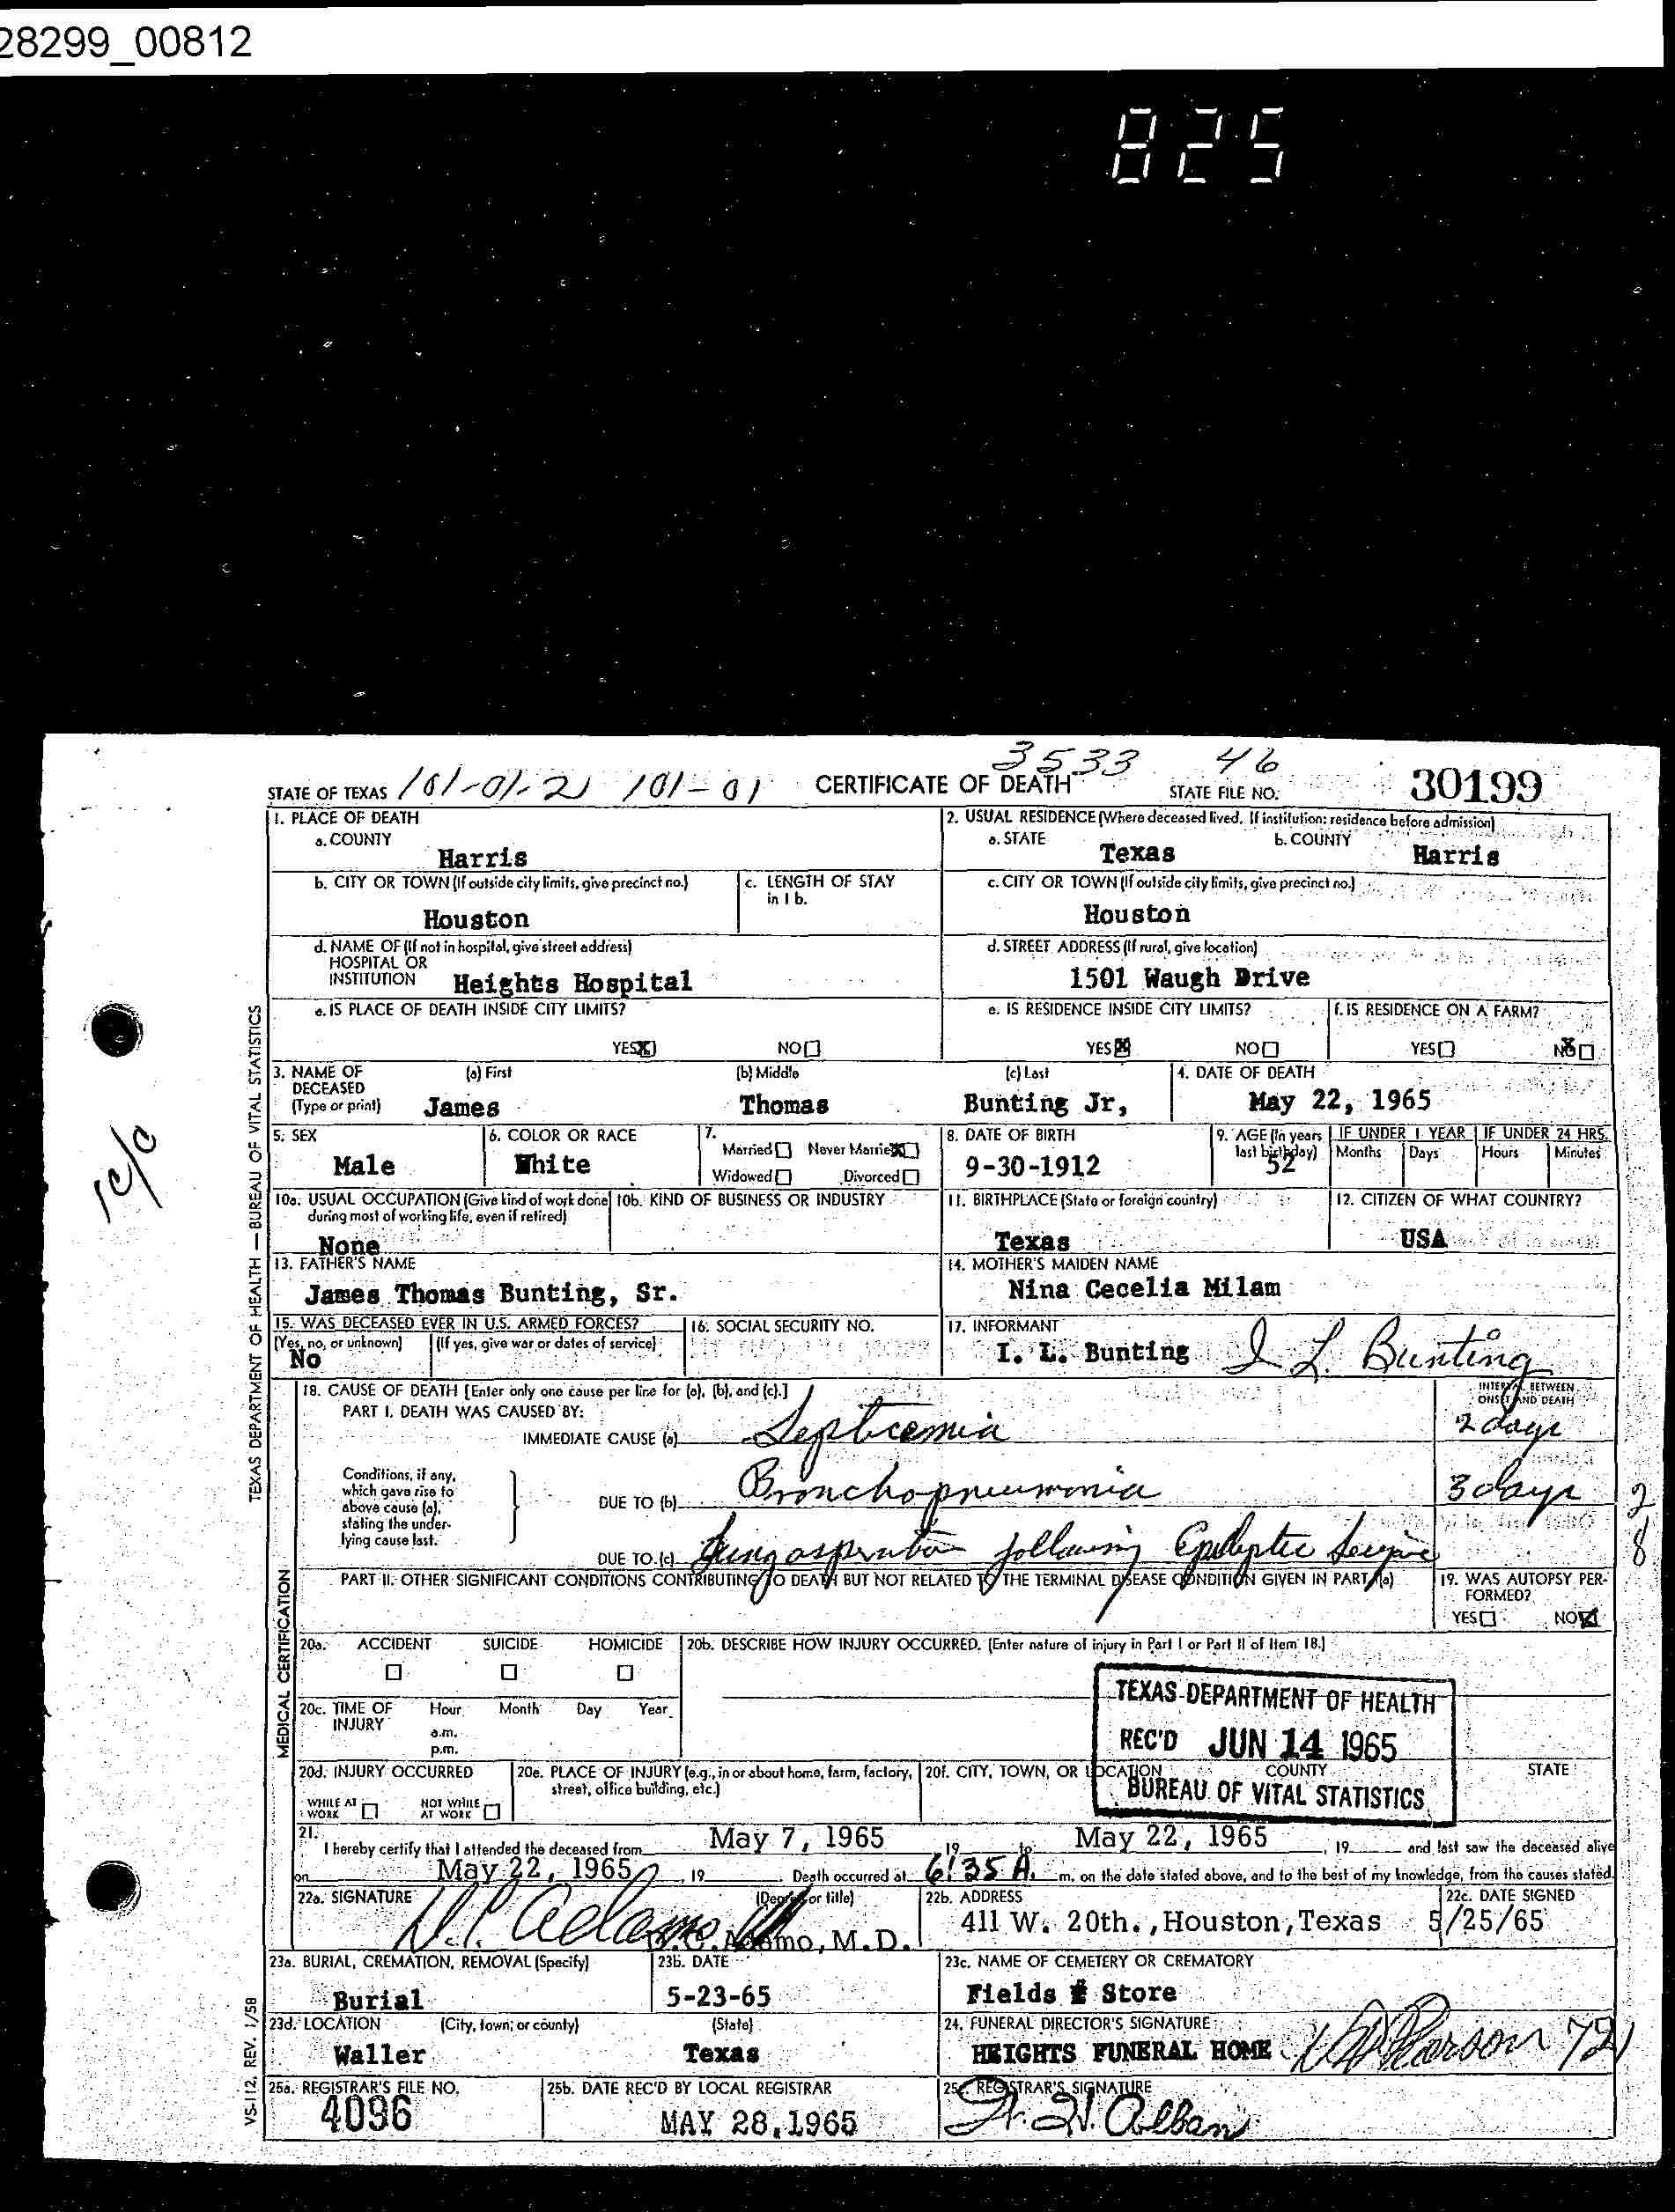 28299_00812
825
3533 46
STATE OF TEXAS 101-01-2 101-01 CERTIFICATE OF DEATH STATE FILE NO. 30199
1. PLACE OF DEATH
a. COUNTY
Harris
2. USUAL RESIDENCE (Where deceased lived. If institution: residence before admission)
a. STATE Texas b. COUNTY Harris
b. CITY OR TOWN (If outside city limits, give precinct no.)
Houston
c. LENGTH OF STAY in 1 b.
c. CITY OR TOWN (If outside city limits, give precinct no.)
Houston
d. NAME OF (If not in hospital, give street address)
HOSPITAL OR
INSTITUTION Heights Hospital
d. STREET ADDRESS (If rural, give location)
1501 Waugh Drive
e. IS PLACE OF DEATH INSIDE CITY LIMITS?
YES X NO
e. IS RESIDENCE INSIDE CITY LIMITS?
YES X NO
f. IS RESIDENCE ON A FARM?
YES NO X
3. NAME OF DECEASED (Type or print)
(a) First (b) Middle (c) Last
James Thomas Bunting Jr,
4. DATE OF DEATH
May 22, 1965
5. SEX
Male
6. COLOR OR RACE
White
7. Married Never Married X
Widowed Divorced
8. DATE OF BIRTH
9-30-1912
9. AGE (In years last birthday)
52
IF UNDER 1 YEAR
Months Days
IF UNDER 24 HRS.
Hours Minutes
10a. USUAL OCCUPATION (Give kind of work done during most of working life, even if retired)
None
10b. KIND OF BUSINESS OR INDUSTRY
11. BIRTHPLACE (State or foreign country)
Texas
12. CITIZEN OF WHAT COUNTRY?
USA
13. FATHER'S NAME
James Thomas Bunting, Sr.
14. MOTHER'S MAIDEN NAME
Nina Cecelia Milam
15. WAS DECEASED EVER IN U.S. ARMED FORCES?
(Yes, no, or unknown) (If yes, give war or dates of service)
No
16. SOCIAL SECURITY NO.
17. INFORMANT
I. L. Bunting I L. Bunting
18. CAUSE OF DEATH [Enter only one cause per line for (a), (b), and (c).]
INTERVAL BETWEEN ONSET AND DEATH
PART I. DEATH WAS CAUSED BY:
IMMEDIATE CAUSE (a) Septicemia 2 days
Conditions, if any, which gave rise to above cause (a), stating the under-lying cause last.
DUE TO (b) Bronchopneumonia 3 days
DUE TO (c) Lung aspiration following Epileptic Seizure
2
8
PART II. OTHER SIGNIFICANT CONDITIONS CONTRIBUTING TO DEATH BUT NOT RELATED TO THE TERMINAL DISEASE CONDITION GIVEN IN PART I(a)
19. WAS AUTOPSY PER-FORMED?
YES NO
20a. ACCIDENT SUICIDE HOMICIDE
20b. DESCRIBE HOW INJURY OCCURRED. (Enter nature of injury in Part I or Part II of Item 18.)
20c. TIME OF INJURY Hour Month Day Year
a.m.
p.m.
TEXAS DEPARTMENT OF HEALTH
REC'D JUN 14 1965
BUREAU OF VITAL STATISTICS
20d. INJURY OCCURRED
WHILE AT WORK NOT WHILE AT WORK
20e. PLACE OF INJURY (e.g., in or about home, farm, factory, street, office building, etc.)
20f. CITY, TOWN, OR LOCATION COUNTY STATE
21. I hereby certify that I attended the deceased from May 7, 1965, 19 to May 22, 1965, 19 and last saw the deceased alive
on May 22, 1965, 19 Death occurred at 6:35 A. m. on the date stated above, and to the best of my knowledge, from the causes stated.
22a. SIGNATURE (Degree or title)
Adamo, M.D.
22b. ADDRESS
411 W. 20th., Houston, Texas
22c. DATE SIGNED
5/25/65
23a. BURIAL, CREMATION, REMOVAL (Specify)
Burial
23b. DATE
5-23-65
23c. NAME OF CEMETERY OR CREMATORY
Fields Store
23d. LOCATION (City, town, or county) (State)
Waller Texas
24. FUNERAL DIRECTOR'S SIGNATURE
HEIGHTS FUNERAL HOME
25a. REGISTRAR'S FILE NO.
4096
25b. DATE REC'D BY LOCAL REGISTRAR
MAY 28, 1965
25c. REGISTRAR'S SIGNATURE
TEXAS DEPARTMENT OF HEALTH — BUREAU OF VITAL STATISTICS
MEDICAL CERTIFICATION
VS-112, REV. 1/58